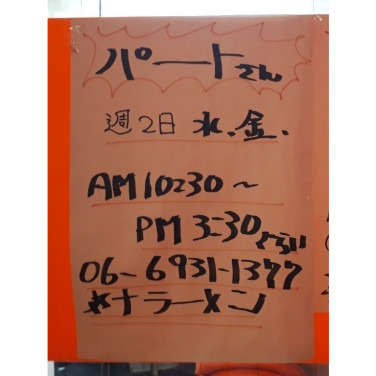 パートさん
週2日 水.金.
AM10:30〜
PM3:30ぐらい
06-6931-1377
ラーメン